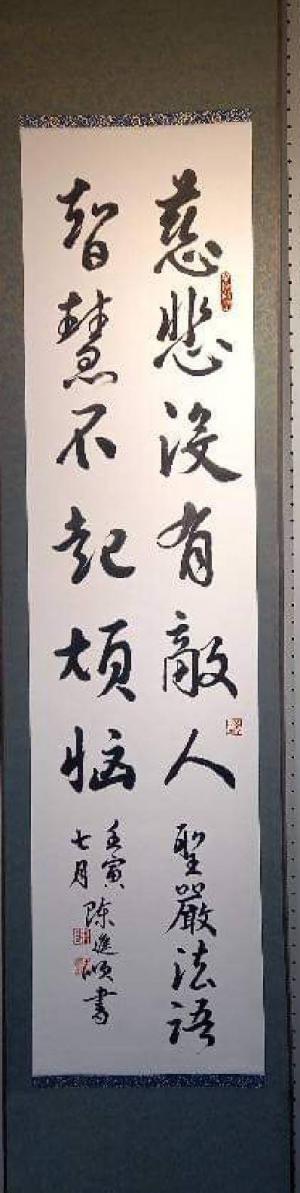 慈悲沒有敵人
聖嚴法語
智慧不起煩惱
壬寅
七月陳進順書